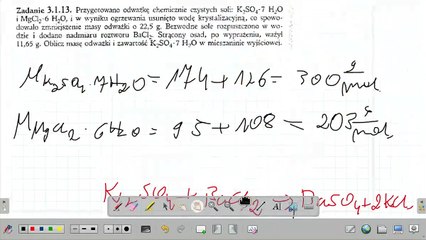 Zadanie 3.1.13. Przygotowano odważkę chemicznie czystych soli: K₂SO₄·7 H₂O
i MgCl₂·6 H₂O, i w wyniku ogrzewania usunięto wodę krystalizacyjną, co spowo-
dowało zmniejszenie masy odważki o 22,5 g. Bezwodne sole rozpuszczono w wo-
dzie i dodano nadmiaru roztworu BaCl₂. Strącony osad, po wyprażeniu, ważył
11,65 g. Oblicz masę odważki i zawartość K₂SO₄·7 H₂O w mieszaninie wyjściowej.
M K₂SO₄·7H₂O = 174 + 126 = 300 g/mol
M MgCl₂·6H₂O = 95 + 108 = 203 g/mol
K₂SO₄ + BaCl₂ → BaSO₄ + 2KCl